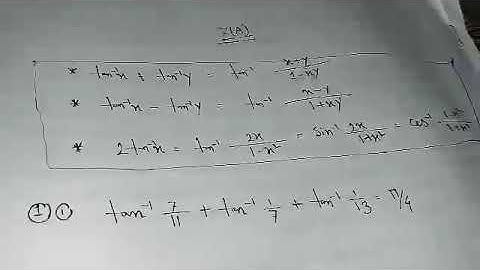 7(A)
* tan⁻¹x + tan⁻¹y = tan⁻¹ (x-y)/(1-xy)
* tan⁻¹x - tan⁻¹y = tan⁻¹ (x-y)/(1+xy)
* 2tan⁻¹x = tan⁻¹ 2x/(1-x²) = sin⁻¹ 2x/(1+x²) = cos⁻¹ (1-x²)/(1+x²)
① ① tan⁻¹ 7/11 + tan⁻¹ 1/7 + tan⁻¹ 1/13 = π/4